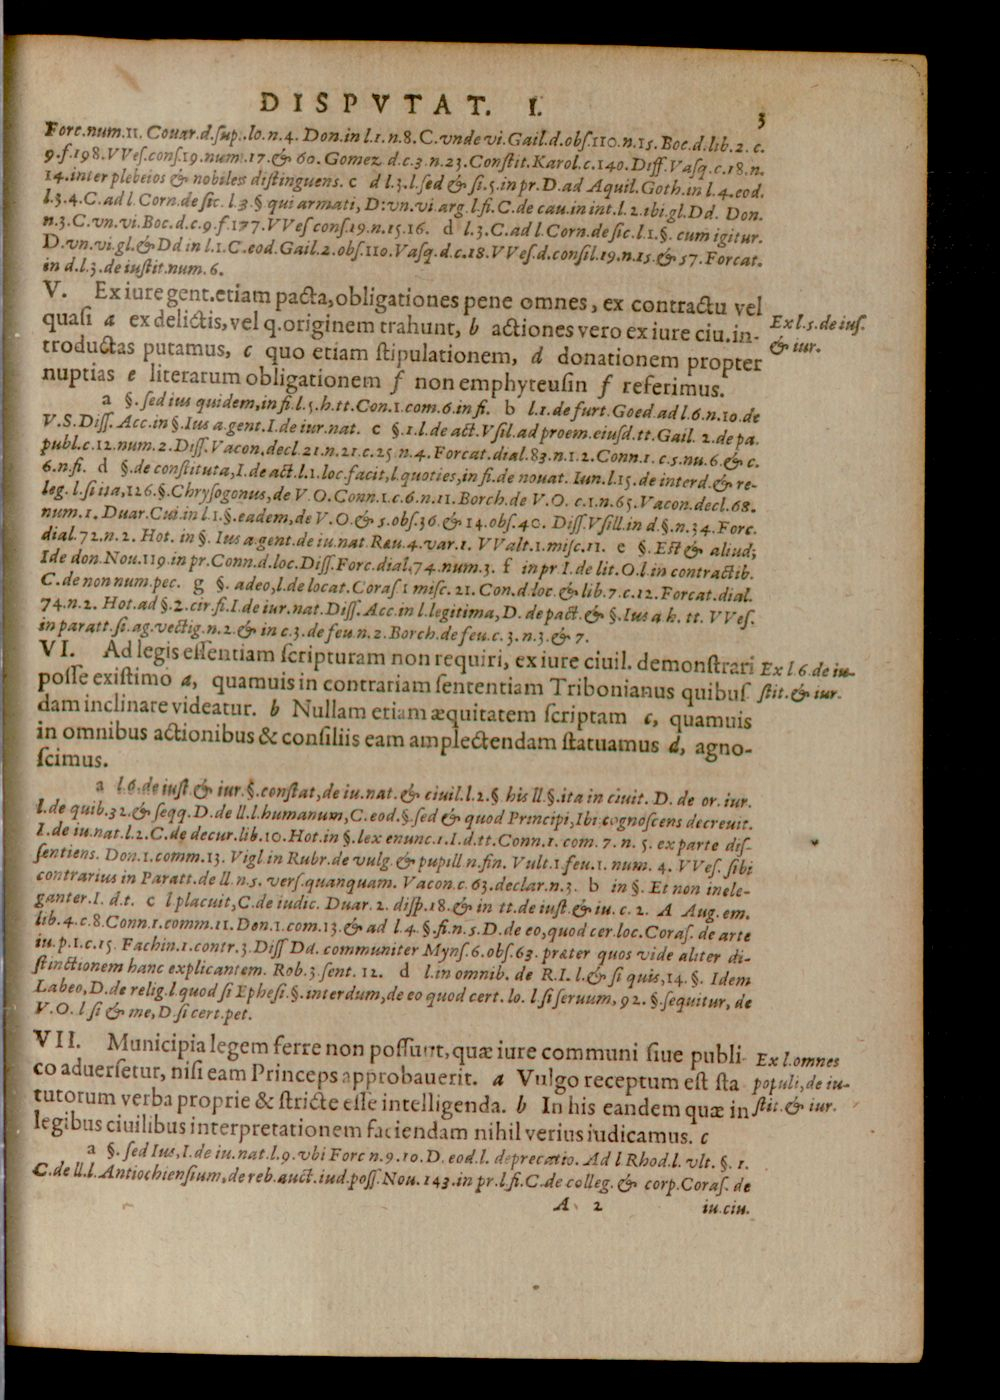 DISPVTAT. I.
3
Forc.num.11. Couar.d.ſup..lo.n.4. Don.in l.1.n.8.C.vnde vi.Gail.d.obſ.110.n.15.Boc.d.lib.2.c.
9.f.198.VVeſ.conſ.19.num.17.& 60.Gomez d.c.3.n.23.Conſtit.Karol.c.140.Diſſ.Vaſq.c.18.n.
14.inter plebeios & nobiles diſtinguens. c d l.3.l.ſed & ſi.5.in pr.D.ad Aquil.Goth.in l.4.eod.
l.3.4.C.ad l.Corn.de ſic. l.3.§ qui armati, D:vn.vi.arg.l.fi.C.de cau.in int.l.2.ibi gl.Dd. Don.
n.3.C.vn.vi.Boc.d.c.9.f.177.VVeſ conſ.19.n.15.16. d l.3.C.ad l.Corn.de ſic.l.1.§. cum igitur.
D.vn.vi.gl.& Dd in l.1.C.eod.Gail.2.obſ.110.Vaſq.d.c.18.VVeſ.d.conſil.19.n.15.& 57.Forcat.
in d.l.3.de iuſtit.num.6.
V. Ex iure gent.etiam pacta,obligationes pene omnes, ex contractu vel
quaſi a ex delictis,vel q.originem trahunt, b actiones vero ex iure ciu.in-
troductas putamus, c quo etiam ſtipulationem, d donationem propter
nuptias e literarum obligationem f non emphyteuſin f referimus.
Ex l.5.de iuſ.
& iur.
a §.ſed ius quidem,in fi.l.5.h.tt.Con.1.com.6.in fi. b l.1.de furt.Goed.ad l.6.n.10.de
V.S.Diſſ. Acc.in §.Ius a.gent.I.de iur.nat. c §.1.l.de act.Vſil.ad proem.eiuſd.tt.Gail. 2.de pa.
publ.c.12.num.2.Diſſ.Vacon,decl.21.n.21.c.25.n.4.Forcat.dial.83.n.1.2.Conn.1.c.5.nu.6.& c.
6.n.fi. d §.de conſtituta,I.de act.l.1.loc.facit,l.quoties,in fi.de nouat. Iun.l.15.de interd.& re-
leg. l.ſi ita,126.§.Chryſogonus,de V.O.Conn.1.c.6.n.11.Borch.de V.O. c.1.n.65.Vacon.decl.68.
num.1. Duar.Cui.in l.1.§.eadem,de V.O.& 5.obſ.36.& 14.obſ.40. Diſſ.Vſill.in d.§.n.34.Forc.
dial.72.n.2. Hot. in §. Ius a.gent.de iu.nat.Rau.4.var.1. VValt.1.miſc.11. e §.Eſt & aliud;
Ide don.Nou.119.in pr.Conn.d.loc.Diſſ.Forc.dial,74.num.3. f in pr I.de lit.O.l.in contractib.
C.de non num.pec. g §. adeo,l.de locat.Coraſ 1 miſc. 21.Con.d loc.& lib.7.c.12.Forcat.dial.
74.n.2. Hot.ad §.2.cir.fi.I.de iur.nat.Diſſ.Acc.in l.legitima, D.de pact.& §.Ius a h. tt. VVeſ.
in paratt.ſi.ag.vectig.n.2.& in c.3.de feu.n.2.Borch.de feu.c.3.n.3.& 7.
VI. Ad legis eſſentiam ſcripturam non requiri, ex iure ciuil. demonſtrari
poſſe exiſtimo a, quamuis in contrariam ſententiam Tribonianus quibuſ
dam inclinare videatur. b Nullam etiam æquitatem ſcriptam c, quamuis
in omnibus actionibus & conſiliis eam amplectendam ſtatuamus d, agno-
ſcimus.
Ex l.6.de iu-
ſtit.& iur.
a l.6.de iuſt.& iur.§.conſtat,de iu.nat.& ciuil.l.2.§ his ll §.ita in ciuit. D. de or. iur.
l.de quib.32.& ſeqq.D.de ll.l.humanum,C.eod.§.ſed & quod Principi,Ibi cognoſcens decreuit.
I.de iu.nat.l.2.C.de decur.lib.10.Hot.in §.lex enunc.1.I.d.tt.Conn.1.com.7.n.5.ex parte diſ-
ſentiens. Don.1.comm.13. Vigl in Rubr.de vulg.& pupill n.fin. Vult.1 feu.1. num. 4. VVeſ. ſibi
contrarius in Paratt.de ll.n.5. verſ.quanquam. Vacon.c.63.declar.n.3. b in §.Et non inele-
ganter.I. d.t. c l placuit,C.de iudic. Duar.2.diſp.18.& in tt.de iuſt.& iu. c. 2. A Aug.em.
lib.4.c.8.Conn.1.comm.11.Don.1.com.13.& ad l.4.§.fi.n.5.D.de eo,quod cer.loc.Coraſ. de arte
iu.p.1.c.15. Fachin.1.contr.3.Diſſ Dd. communiter Mynſ.6.obſ.63.præter quos vide aliter di-
ſtinctionem hanc explicantem. Rob.3.ſent. 12. d l.in omnib. de R.I. l.& ſi quis,14.§. Idem
Labeo,D.de relig.l.quod ſi Epheſi.§.interdum,de eo quod cert. lo. l ſi ſeruum, 92. §.ſequitur, de
V.O. l ſi & me,D.ſi cert.pet.
VII. Municipia legem ferre non poſſunt,quæ iure communi ſiue publi-
co aduerſetur, niſi eam Princeps approbauerit. a Vulgo receptum eſt ſta
tutorum verba proprie & ſtricte eſſe intelligenda. b In his eandem quæ in
legibus ciuilibus interpretationem faciendam nihil verius iudicamus. c
Ex l.omnes
populi,de iu-
ſtit.& iur.
a §.ſed Ius,I.de iu.nat.l.9.vbi Forc n.9.10.D.eod.l. deprecatio. Ad l Rhod.l. vlt. §. 1.
C.de ll.l.Antiochienſium,de reb.auct.iud.poſſ.Nou.143.in pr.l.fi.C.de colleg. & corp.Coraſ. de
A 2
iu.ciu.